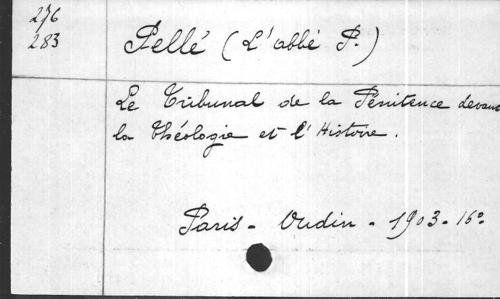 276
283
Pellé (L'abbé P.)
Le Tribunal de la Pénitence devant
la Théologie et l'Histoire.
Paris - Oudin - 1903 - 16º